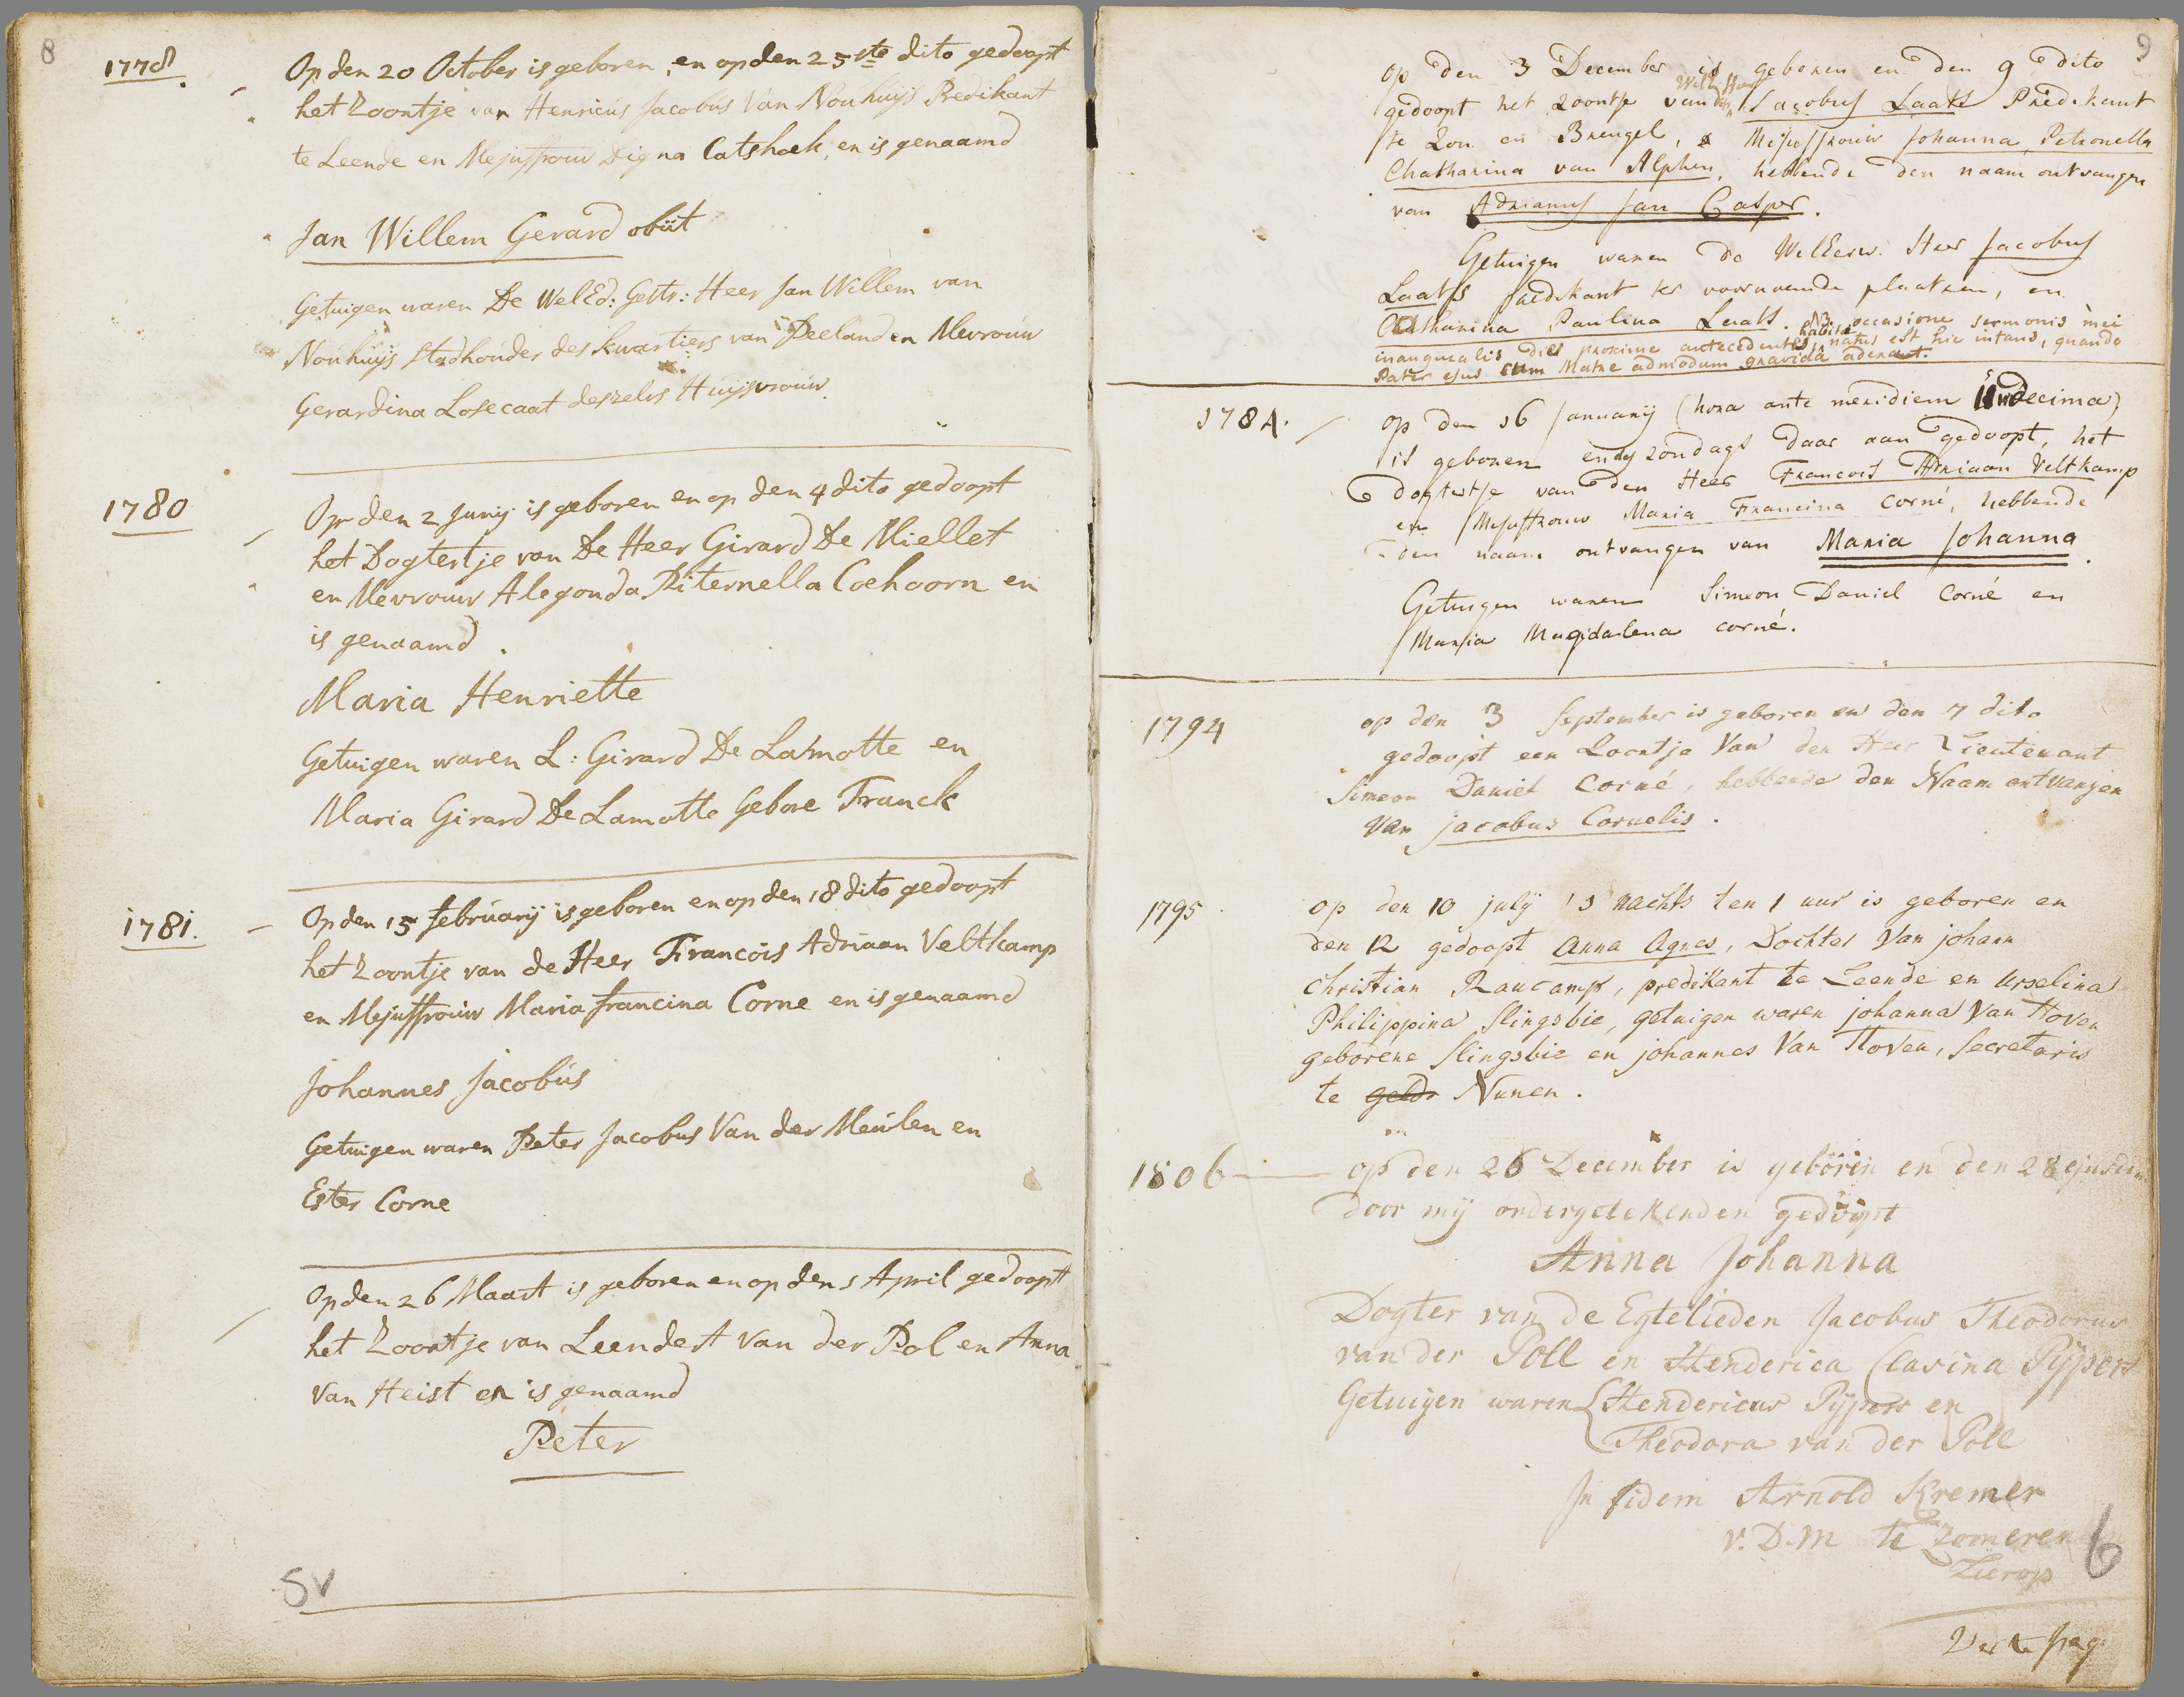 8
1778.
Op den 20 October is geboren, en op den 25ste dito gedoopt
het Zoontje van Henricus Jacobus Van Nouhuijs Predikant
te Leende en Mejuffrouw Digna Catshoek, en is genaamd
Jan Willem Gerard obiit
Getuigen waren De WelEd: Gestr: Heer Jan Willem van
Nouhuijs Stadhouder des kwartiers van Peeland en Mevrouw
Gerardina Losecaat deszelvs Huijsvrouw.
1780
Op den 2 Junij is geboren en op den 4 dito gedoopt
het Dogtertje van De Heer Girard De Miellet
en Mevrouw Alegonda Piternella Coehoorn en
is genaamd.
Maria Henriette
Getuigen waren L: Girard De Lamotte en
Maria Girard De Lamotte Gebore Franck
1781.
Op den 15 februarij is geboren en op den 18 dito gedoopt
het Zoontje van de Heer Francois Adriaan Veltkamp
en Mejuffrouw Maria francina Corne en is genaamd
Johannes Jacobus
Getuigen waren Peter Jacobus Van der Meulen en
Ester Corne
Op den 26 Maart is geboren en op den 1 April gedoopt
het Zoontje van Leendert Van der Pol en Anna
Van Heist en is genaamd
Peter
5v
9
Op den 3 December is geboren en den 9 dito
gedoopt het zoontje van Jacobus Laats Predikant
te Zon en Breugel, & Mejuffrouw Johanna Petronella
Chatharina van Alphen, hebbende den naam ontvangen
van Adrianus Jan Casper.
Getuigen waren de WelEerw. Heer Jacobus
Laats predikant ter voornoemde plaatzen, en
Catharina Paulina Laats. NB occasione sermonis mei
inauguralis die proxime antecedente habiti, natus est hic infans, quando
Pater ejus cum Matre admodum gravida aderant.
1784.
Op den 16 Januarij (hora ante meridiem undecima)
is geboren en des zondags daar aan gedoopt, het
dogtertje van den Heer Francois Adriaan Veltkamp
en Mejuffrouw Maria Francina Corné, hebbende
den naam ontvangen van Maria Johanna.
Getuigen waren Simeon Daniel Corné en
Maria Magdalena corné.
1794
op den 3 September is geboren en den 7 dito
gedoopt een Zoontje Van den Heer Lieutenant
Simeon Daniel Corné, hebbende den Naam ontvangen
van jacobus Cornelis.
1795
op den 10 july 's nachts ten 1 uur is geboren en
den 12 gedoopt anna Agnes, Dochter Van johann
Christian Raucamp, predikant te Leende en Urselina
Philippina Slingsbie, getuigen waren johanna Van Hoven
geborene Slingsbie en johannes Van Hoven, Secretaris
te geldr Nunen.
1806
op den 26 December is geboren en den 28 ejusdem
door mij ondergetekenden gedoopt
Anna Johanna
Dogter van de Egtelieden Jacobus Theodorus
van der Poll en Henderica Clasina Pijpers
Getuigen waren Hendericus Pijpers en
Theodora van der Poll
In fidem Arnold Kremer
V.D.M te Zomeren
Lierop
6
Verte pag